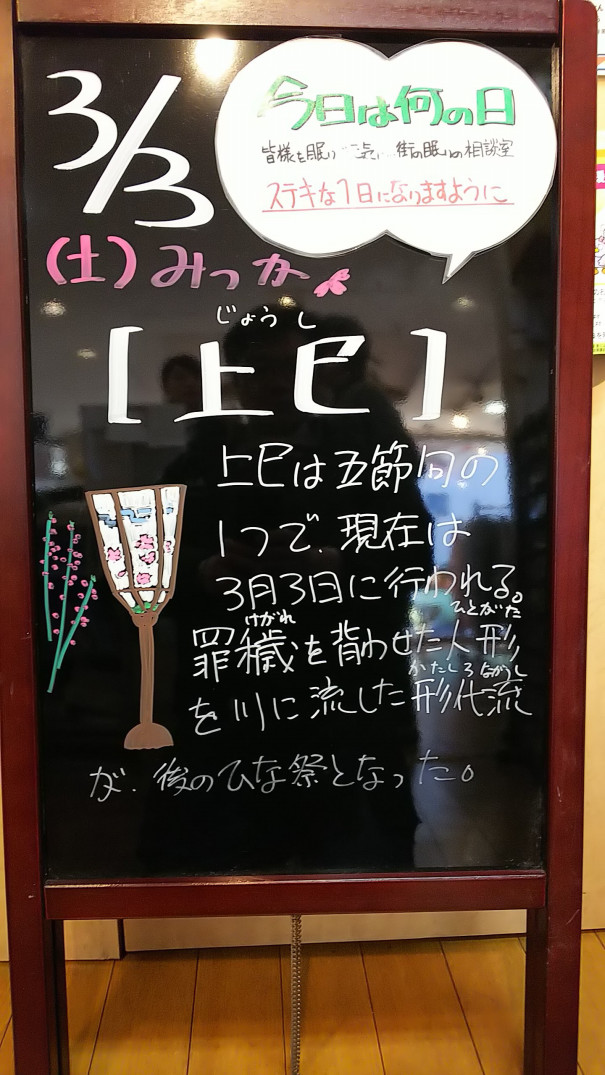 3/3
今日は何の日
皆様を眠りで 街の眠りの相談室
ステキな1日になりますように
(土)みっか
じょうし
[上巳]
上巳は五節句の
1つで、現在は
3月3日に行われる。
けがれ ひとがた
罪穢を背わせた人形
かたしろながし
を川に流した形代流
が、後のひな祭となった。